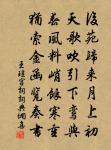 後苑歸來月上初
天歌吹引下鸞輿
春風料峭餘寒重
獨索金函覽奏書
王珪宮詞